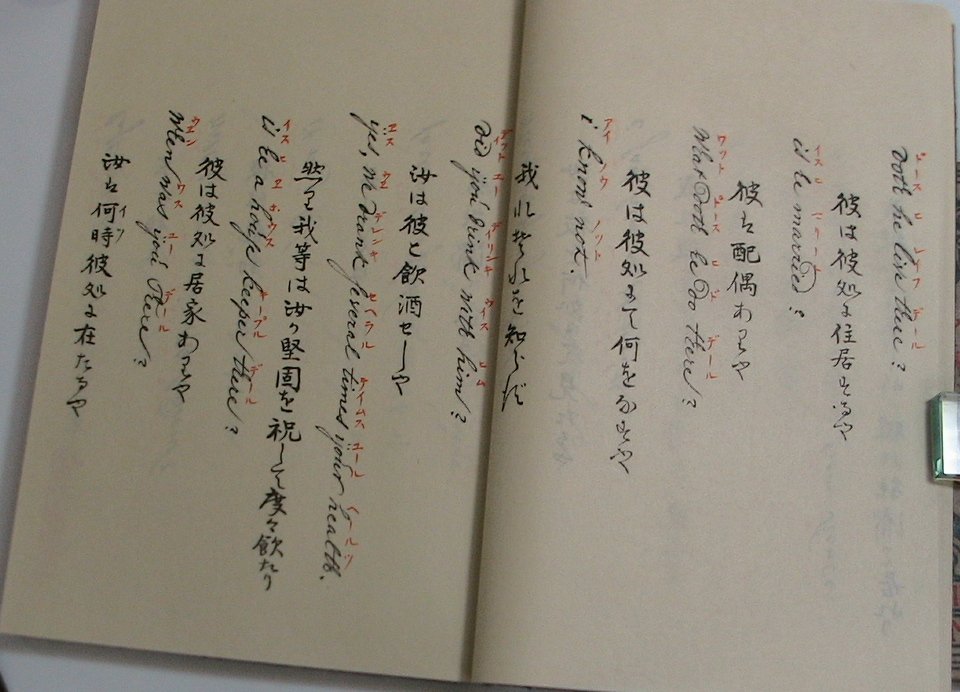 ドース ヒ レイフ デール
Doth he live there?
彼は彼処に住居するや
イス ヒ マリード
is he married?
彼は配偶ありや
ワット ドース ヒ ド デール
What Doth he Do there?
彼は彼処にて何をなすや
アイ ノウ ノット
i know not.
我れ其れを知らず
ヂット ユー デリンキ ウイス ヒム
Did you Drink with him?
汝は彼と飲酒せしや
エス ウエ デレンキ セヘラル タイムス ユール ヘールツ
yes, we Drank several times your health.
然り我等は汝の堅固を祝して度々飲たり
イス ヒ エ ホウス キープル デール
is he a house keeper there?
彼は彼処に居家ありや
ウエン ワス ユー デール
When was you there?
汝は何時彼処に在たるや
イツ